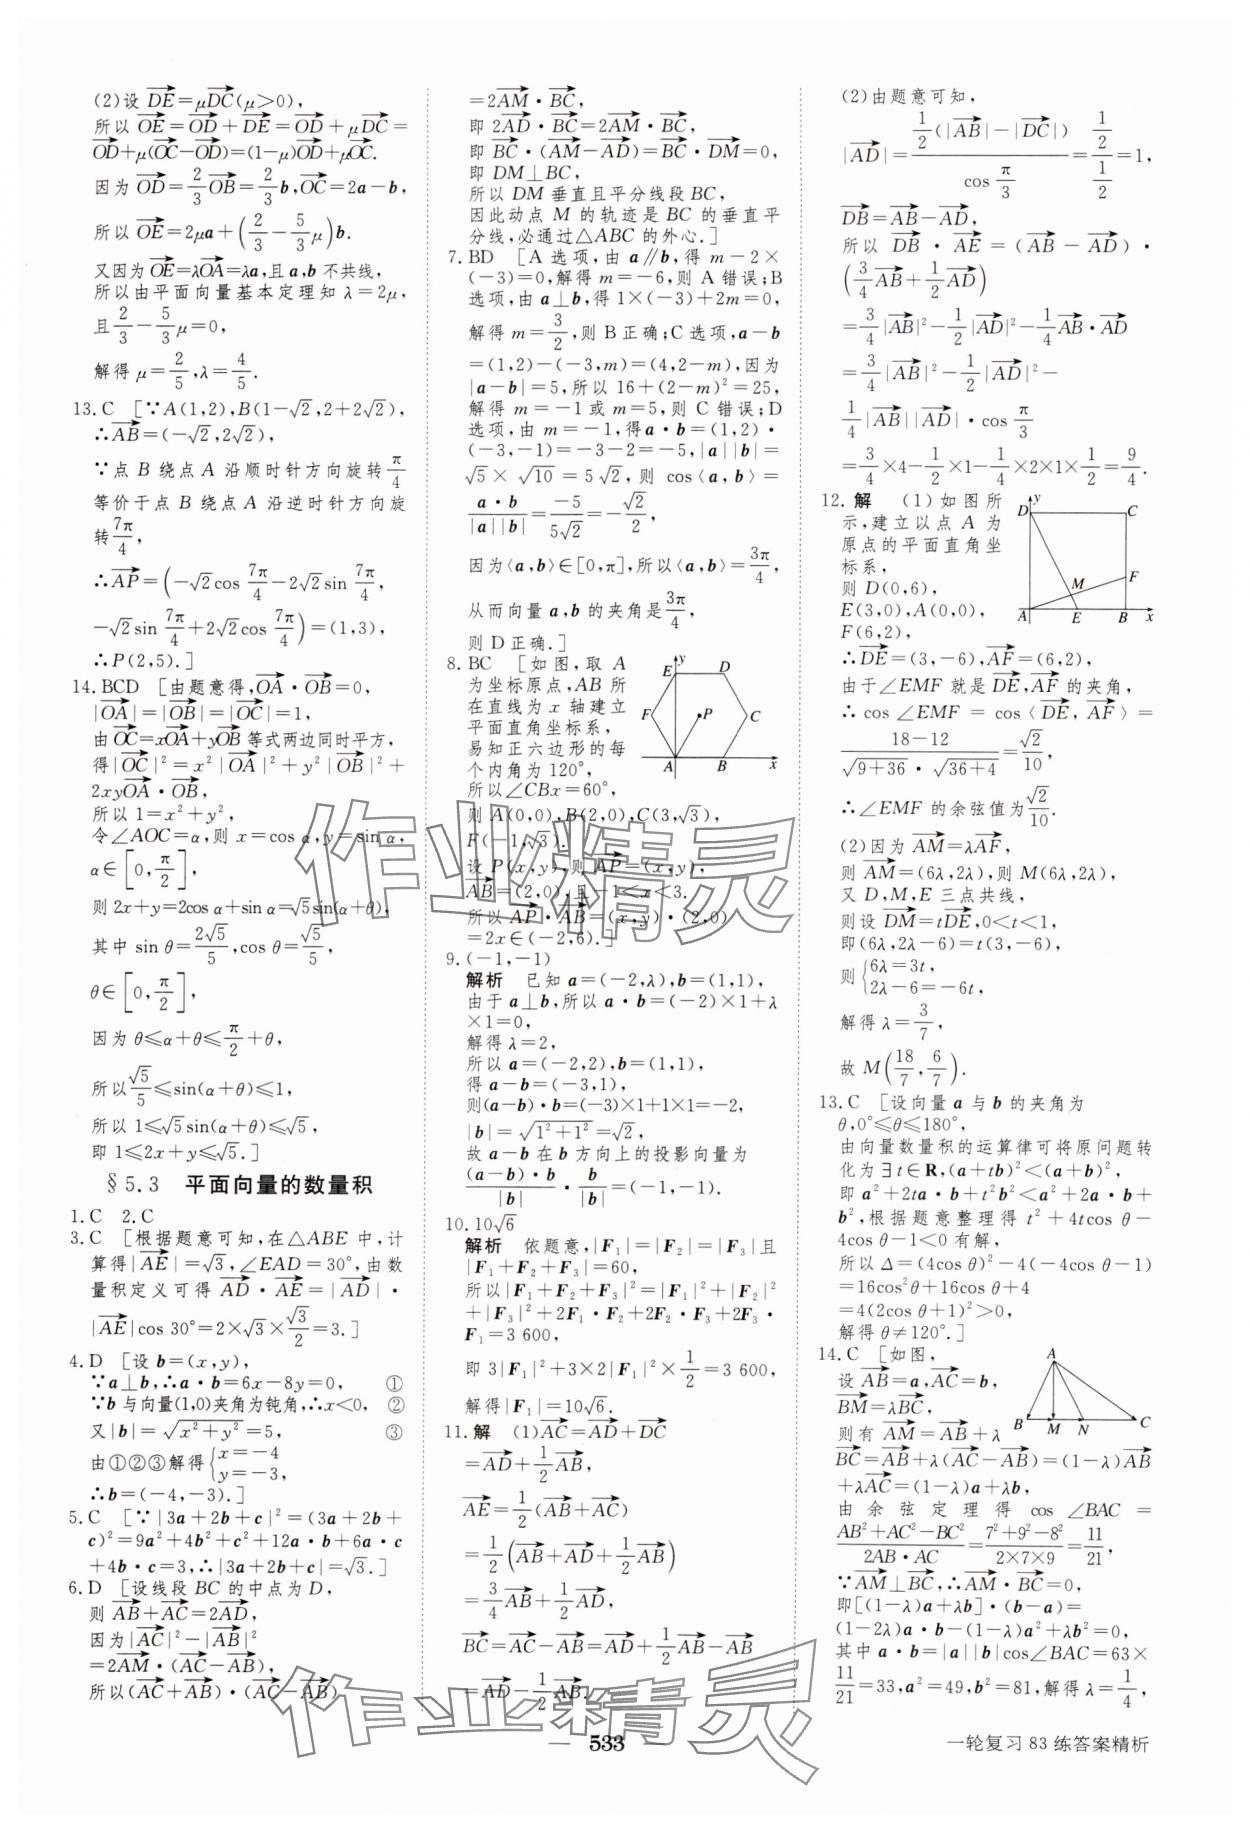 (2)设$\overrightarrow{DE}=\mu\overrightarrow{DC}(\mu>0)$,
所以$\overrightarrow{OE}=\overrightarrow{OD}+\overrightarrow{DE}=\overrightarrow{OD}+\mu\overrightarrow{DC}=$
$\overrightarrow{OD}+\mu(\overrightarrow{OC}-\overrightarrow{OD})=(1-\mu)\overrightarrow{OD}+\mu\overrightarrow{OC}$.
因为$\overrightarrow{OD}=\frac{2}{3}\overrightarrow{OB}=\frac{2}{3}b,\overrightarrow{OC}=2a-b$,
所以$\overrightarrow{OE}=2\mu a+\left(\frac{2}{3}-\frac{5}{3}\mu\right)b$.
又因为$\overrightarrow{OE}=\lambda\overrightarrow{OA}=\lambda a$,且a,b不共线,
所以由平面向量基本定理知λ=2μ,
且$\frac{2}{3}-\frac{5}{3}\mu=0$,
解得$\mu=\frac{2}{5},\lambda=\frac{4}{5}$.
13.C [∵A(1,2),B(1-√2,2+2√2),
∴$\overrightarrow{AB}$=(-√2,2√2),
∵点B绕点A沿顺时针方向旋转$\frac{π}{4}$
等价于点B绕点A沿逆时针方向旋
转$\frac{7π}{4}$,
∴$\overrightarrow{AP}=\left(-\sqrt{2}\cos\frac{7π}{4}-2\sqrt{2}\sin\frac{7π}{4}\right.$,
$\left.-\sqrt{2}\sin\frac{7π}{4}+2\sqrt{2}\cos\frac{7π}{4}\right)=(1,3)$,
∴P(2,5).]
14.BCD [由题意得,$\overrightarrow{OA}\cdot\overrightarrow{OB}=0$,
$|\overrightarrow{OA}|=|\overrightarrow{OB}|=|\overrightarrow{OC}|=1$,
由$\overrightarrow{OC}=x\overrightarrow{OA}+y\overrightarrow{OB}$等式两边同时平方,
得$|\overrightarrow{OC}|^2=x^2|\overrightarrow{OA}|^2+y^2|\overrightarrow{OB}|^2+$
$2xy\overrightarrow{OA}\cdot\overrightarrow{OB}$,
所以1=x²+y²,
令∠AOC=α,则x=cos α,y=sin α,
$α∈\left[0,\frac{π}{2}\right]$,
则2x+y=2cos α+sin α=√5sin(α+θ),
其中$\sin θ=\frac{2\sqrt{5}}{5},\cos θ=\frac{\sqrt{5}}{5}$,
$θ∈\left[0,\frac{π}{2}\right]$,
因为$θ≤α+θ≤\frac{π}{2}+θ$,
所以$\frac{\sqrt{5}}{5}≤\sin(α+θ)≤1$,
所以1≤√5sin(α+θ)≤√5,
即1≤2x+y≤√5.]
§5.3 平面向量的数量积
1.C 2.C
3.C [根据题意可知,在△ABE中,计
算得$|\overrightarrow{AE}|=\sqrt{3}$,∠EAD=30°,由数
量积定义可得$\overrightarrow{AD}\cdot\overrightarrow{AE}=|\overrightarrow{AD}|\cdot$
$|\overrightarrow{AE}|\cos 30°=2×\sqrt{3}×\frac{\sqrt{3}}{2}=3$.]
4.D [设b=(x,y),
∵a⊥b,∴a·b=6x-8y=0, ①
∵b与向量(1,0)夹角为钝角,∴x<0, ②
又$|b|=\sqrt{x^2+y^2}=5$, ③
由①②③解得$\begin{cases}x=-4\\y=-3,\end{cases}$
∴b=(-4,-3).]
5.C [∵|3a+2b+c|²=(3a+2b+
c)²=9a²+4b²+c²+12a·b+6a·c
+4b·c=3,∴|3a+2b+c|=√3.]
6.D [设线段BC的中点为D,
则$\overrightarrow{AB}+\overrightarrow{AC}=2\overrightarrow{AD}$,
因为$|\overrightarrow{AC}|^2-|\overrightarrow{AB}|^2$
$=2\overrightarrow{AM}\cdot(\overrightarrow{AC}-\overrightarrow{AB})$,
所以$(\overrightarrow{AC}+\overrightarrow{AB})\cdot(\overrightarrow{AC}-\overrightarrow{AB})$
$=2\overrightarrow{AM}\cdot\overrightarrow{BC}$,
即$2\overrightarrow{AD}\cdot\overrightarrow{BC}=2\overrightarrow{AM}\cdot\overrightarrow{BC}$,
即$\overrightarrow{BC}\cdot(\overrightarrow{AM}-\overrightarrow{AD})=\overrightarrow{BC}\cdot\overrightarrow{DM}=0$,
即DM⊥BC,
所以DM垂直且平分线段BC,
因此动点M的轨迹是BC的垂直平
分线,必通过△ABC的外心.]
7.BD [A选项,由a∥b,得m-2×
(-3)=0,解得m=-6,则A错误;B
选项,由a⊥b,得1×(-3)+2m=0,
解得$m=\frac{3}{2}$,则B正确;C选项,a-b
=(1,2)-(-3,m)=(4,2-m),因为
|a-b|=5,所以16+(2-m)²=25,
解得m=-1或m=5,则C错误;D
选项,由m=-1,得a·b=(1,2)·
(-3,-1)=-3-2=-5,|a||b|=
√5×√10=5√2,则cos〈a,b〉=
$\frac{a\cdot b}{|a||b|}=\frac{-5}{5\sqrt{2}}=-\frac{\sqrt{2}}{2}$,
因为〈a,b〉∈[0,π],所以〈a,b〉=$\frac{3π}{4}$,
从而向量a,b的夹角是$\frac{3π}{4}$,
则D正确.]
8.BC [如图,取A
为坐标原点,AB所
在直线为x轴建立
平面直角坐标系,
易知正六边形的每
个内角为120°,
所以∠CBx=60°,
则A(0,0),B(2,0),C(3,√3),
F(-1,√3).
设P(x,y),则$\overrightarrow{AP}$=(x,y),
$\overrightarrow{AB}$=(2,0),且-1<x<3.
所以$\overrightarrow{AP}\cdot\overrightarrow{AB}$=(x,y)·(2,0)
=2x∈(-2,6).]
y E D F P C A B x
9.(-1,-1)
解析 已知a=(-2,λ),b=(1,1),
由于a⊥b,所以a·b=(-2)×1+λ
×1=0,
解得λ=2,
所以a=(-2,2),b=(1,1),
得a-b=(-3,1),
则(a-b)·b=(-3)×1+1×1=-2,
$|b|=\sqrt{1^2+1^2}=\sqrt{2}$,
故a-b在b方向上的投影向量为
$\frac{(a-b)\cdot b}{|b|}\cdot\frac{b}{|b|}=(-1,-1)$.
10.10√6
解析 依题意,|F₁|=|F₂|=|F₃|且
|F₁+F₂+F₃|=60,
所以|F₁+F₂+F₃|²=|F₁|²+|F₂|²
+|F₃|²+2F₁·F₂+2F₂·F₃+2F₃·
F₁=3 600,
即$3|F_1|^2+3×2|F_1|^2×\frac{1}{2}=3 600$,
解得|F₁|=10√6.
11.解 (1)$\overrightarrow{AC}=\overrightarrow{AD}+\overrightarrow{DC}$
$=\overrightarrow{AD}+\frac{1}{2}\overrightarrow{AB}$,
$\overrightarrow{AE}=\frac{1}{2}(\overrightarrow{AB}+\overrightarrow{AC})$
$=\frac{1}{2}\left(\overrightarrow{AB}+\overrightarrow{AD}+\frac{1}{2}\overrightarrow{AB}\right)$
$=\frac{3}{4}\overrightarrow{AB}+\frac{1}{2}\overrightarrow{AD}$,
$\overrightarrow{BC}=\overrightarrow{AC}-\overrightarrow{AB}=\overrightarrow{AD}+\frac{1}{2}\overrightarrow{AB}-\overrightarrow{AB}$
$=\overrightarrow{AD}-\frac{1}{2}\overrightarrow{AB}$.
(2)由题意可知,
$|\overrightarrow{AD}|=\frac{\frac{1}{2}(|\overrightarrow{AB}|-|\overrightarrow{DC}|)}{\cos\frac{π}{3}}=\frac{\frac{1}{2}}{\frac{1}{2}}=1$,
$\overrightarrow{DB}=\overrightarrow{AB}-\overrightarrow{AD}$,
所以$\overrightarrow{DB}\cdot\overrightarrow{AE}=(\overrightarrow{AB}-\overrightarrow{AD})\cdot$
$\left(\frac{3}{4}\overrightarrow{AB}+\frac{1}{2}\overrightarrow{AD}\right)$
$=\frac{3}{4}|\overrightarrow{AB}|^2-\frac{1}{2}|\overrightarrow{AD}|^2-\frac{1}{4}\overrightarrow{AB}\cdot\overrightarrow{AD}$
$=\frac{3}{4}|\overrightarrow{AB}|^2-\frac{1}{2}|\overrightarrow{AD}|^2-$
$\frac{1}{4}|\overrightarrow{AB}||\overrightarrow{AD}|\cdot\cos\frac{π}{3}$
$=\frac{3}{4}×4-\frac{1}{2}×1-\frac{1}{4}×2×1×\frac{1}{2}=\frac{9}{4}$.
12.解 (1)如图所
示,建立以点A为
原点的平面直角坐
标系,
则D(0,6),
E(3,0),A(0,0),
F(6,2),
∴$\overrightarrow{DE}$=(3,-6),$\overrightarrow{AF}$=(6,2),
由于∠EMF就是$\overrightarrow{DE},\overrightarrow{AF}$的夹角,
∴cos∠EMF=cos〈$\overrightarrow{DE},\overrightarrow{AF}$〉=
$\frac{18-12}{\sqrt{9+36}\cdot\sqrt{36+4}}=\frac{\sqrt{2}}{10}$,
∴∠EMF的余弦值为$\frac{\sqrt{2}}{10}$.
y D C M F A E B x
(2)因为$\overrightarrow{AM}=λ\overrightarrow{AF}$,
则$\overrightarrow{AM}$=(6λ,2λ),则M(6λ,2λ),
又D,M,E三点共线,
则设$\overrightarrow{DM}=t\overrightarrow{DE}$,0<t<1,
即(6λ,2λ-6)=t(3,-6),
则$\begin{cases}6λ=3t,\\2λ-6=-6t,\end{cases}$
解得$λ=\frac{3}{7}$,
故$M\left(\frac{18}{7},\frac{6}{7}\right)$.
13.C [设向量a与b的夹角为
θ,0°≤θ≤180°,
由向量数量积的运算律可将原问题转
化为∃t∈R,(a+tb)²<(a+b)²,
即a²+2ta·b+t²b²<a²+2a·b+
b²,根据题意整理得t²+4tcos θ-
4cos θ-1<0有解,
所以Δ=(4cos θ)²-4(-4cos θ-1)
=16cos²θ+16cos θ+4
=4(2cos θ+1)²>0,
解得θ≠120°.]
14.C [如图,
设$\overrightarrow{AB}=a,\overrightarrow{AC}=b$,
$\overrightarrow{BM}=λ\overrightarrow{BC}$,
则有$\overrightarrow{AM}=\overrightarrow{AB}+λ$
$\overrightarrow{BC}=\overrightarrow{AB}+λ(\overrightarrow{AC}-\overrightarrow{AB})=(1-λ)\overrightarrow{AB}$
$+λ\overrightarrow{AC}=(1-λ)a+λb$,
由余弦定理得cos∠BAC=
$\frac{AB^2+AC^2-BC^2}{2AB\cdot AC}=\frac{7^2+9^2-8^2}{2×7×9}=\frac{11}{21}$,
∵$\overrightarrow{AM}⊥\overrightarrow{BC}$,∴$\overrightarrow{AM}\cdot\overrightarrow{BC}=0$,
即[(1-λ)a+λb]·(b-a)=
(1-2λ)a·b-(1-λ)a²+λb²=0,
其中a·b=|a||b|cos∠BAC=63×
$\frac{11}{21}=33,a^2=49,b^2=81$,解得$λ=\frac{1}{4}$,
A B M N C
作业精灵
作业精灵
533
一轮复习83练答案精析